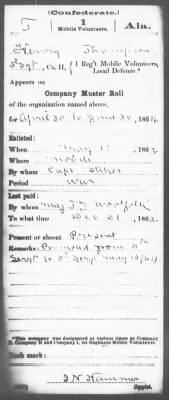 (Confederate.)
T 1 Ala.
Mobile Volunteers,
Henry Thompson
3 Sgt, Co. H, 1 Reg't Mobile Volunteers,
Local Defence.*
Appears on
Company Muster Roll
of the organization named above,
for April 30 to June 30, 1864.
Enlisted:
When May 1 , 186
Where Mobile
By whom Capt
Period War
Last paid:
By whom Maj.
To what time Dec. 31 , 1863.
Present or absent Present
Remarks: Promoted from 5th
Sergt to 3d Sergt May
*This company was designated at various times as Company
Company H and Company I, 1st Regiment Mobile Volunteers.
Book mark:
Copyist.